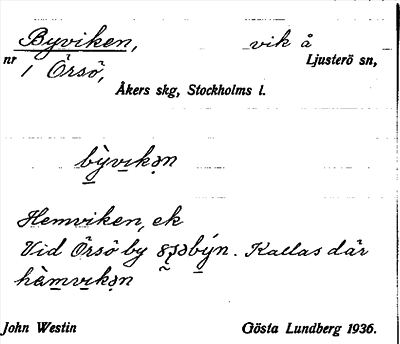 Byviken, vik å
nr 1 Örsö, Ljusterö sn,
Åkers skg, Stockholms l.
bỳvıkən
Hemviken, ek
Vid Örsö by býn. Kallas där
hàmvikən
John Westin Gösta Lundberg 1936.